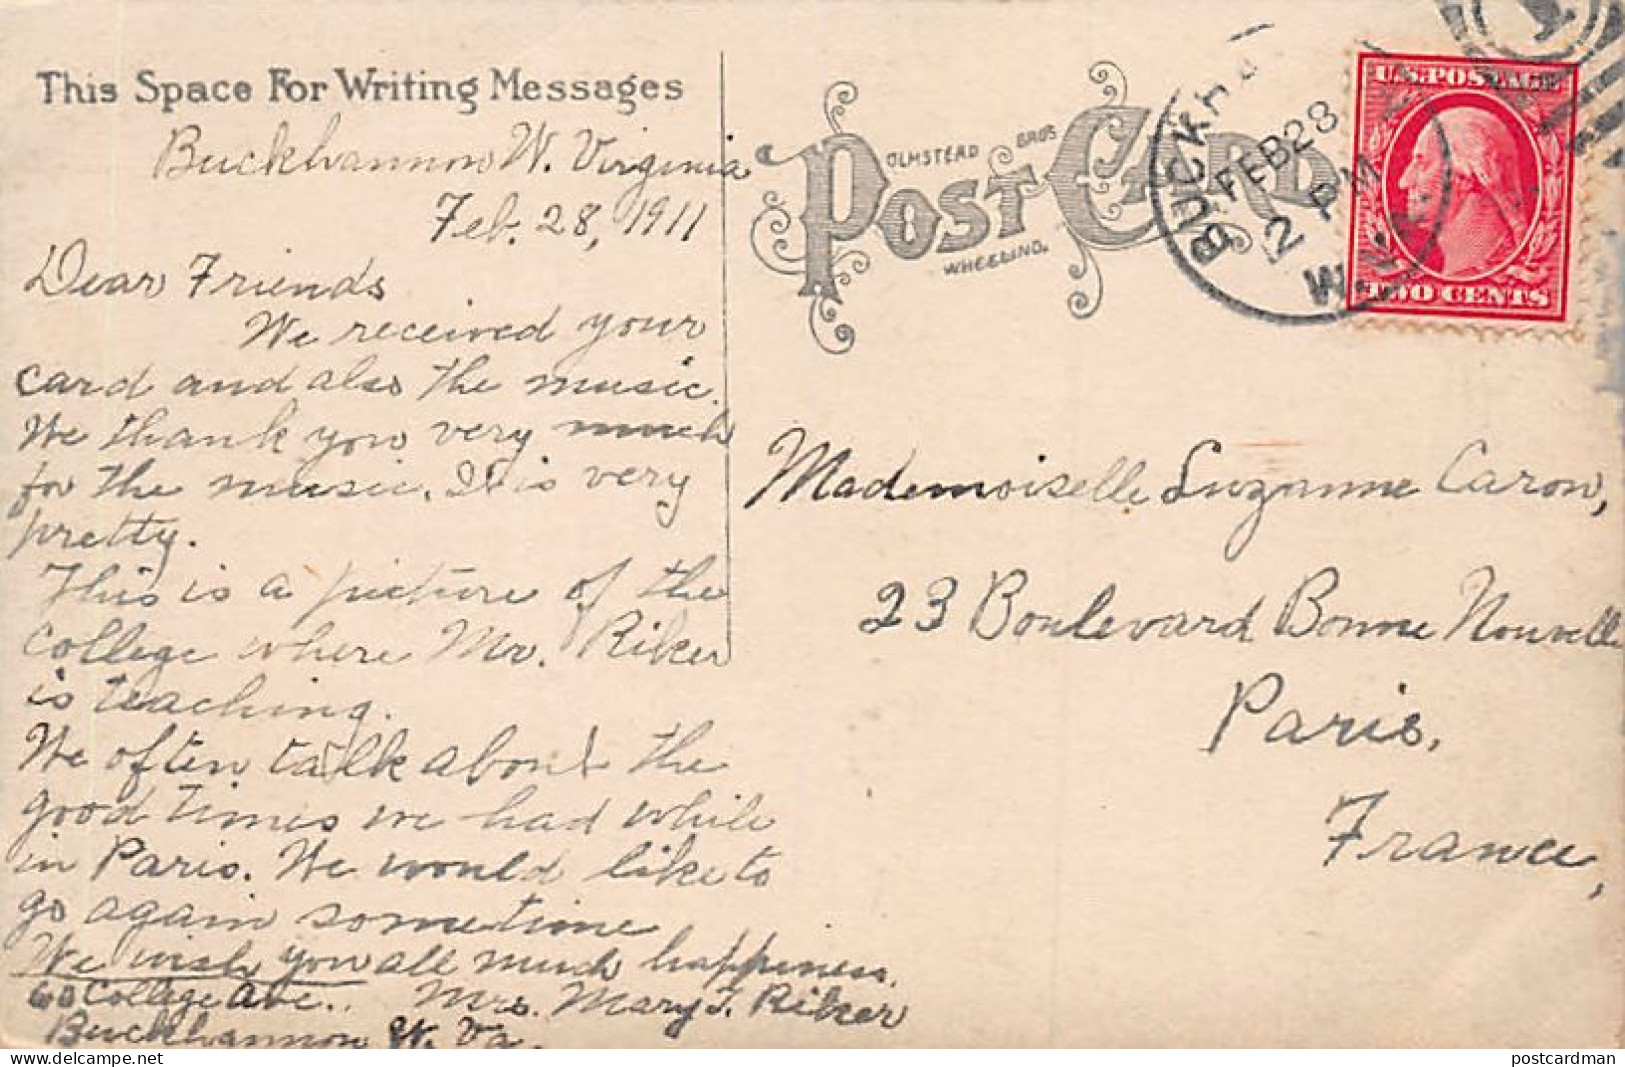 This Space For Writing Messages
Buckhannon W. Virginia
Feb. 28, 1911
Dear Friends
We received your
card and also the music.
We thank you very much
for the music. It is very
pretty.
This is a picture of the
college where Mr. Riker
is teaching.
We often talk about the
good times we had while
in Paris. We would like to
go again sometime
We wish you all much happiness.
60 College Ave.. Mrs. Mary J. Riker
Buckhannon W. Va.
OLMSTEAD BROS
POST CARD
WHEELING.
BUCKHA
FEB 28
2 PM
W.VA.
U.S. POSTAGE
TWO CENTS
Mademoiselle Suzanne Caron,
23 Boulevard Bonne Nouvelle
Paris,
France,
postcardman